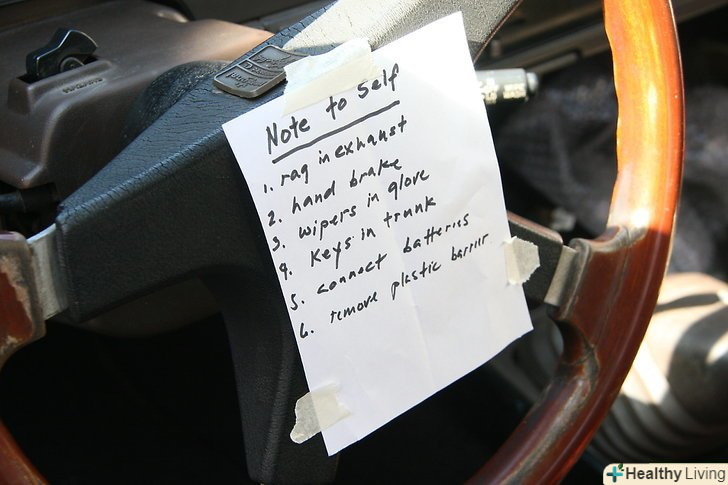 Note to Self
1. rag in exhaust
2. hand brake
3. wipers in glove
4. Keys in trunk
5. connect batteries
6. remove plastic barrier
Healthy Living